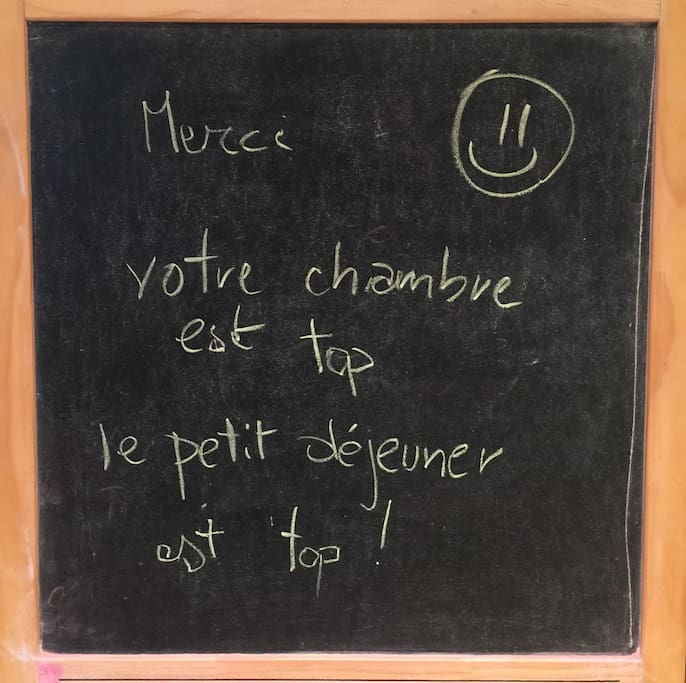 Merci
votre chambre
est top
le petit déjeuner
est top !